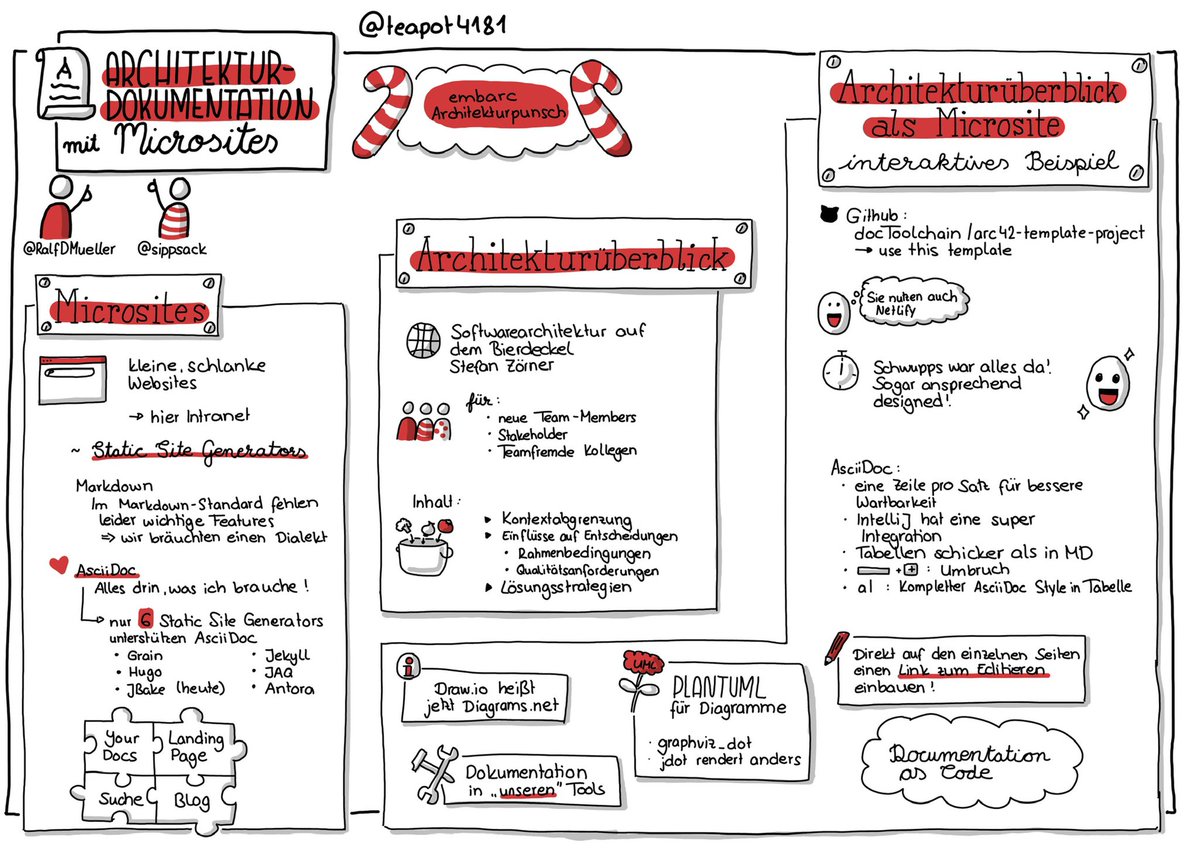 @teapot4181
A
ARCHITEKTUR-
DOKUMENTATION
mit Microsites
@RalfDMueller
@sippsack
embarc
Architekturpunsch
Microsites
kleine, schlanke
Websites
→ hier Intranet
~ Static Site Generators
Markdown
Im Markdown-Standard fehlen
leider wichtige Features
⇒ wir bräuchten einen Dialekt
AsciiDoc
Alles drin, was ich brauche!
nur 6 Static Site Generators
unterstützen AsciiDoc
• Grain
• Hugo
• JBake (heute)
• Jekyll
• JAQ
• Antora
Your
Docs
Landing
Page
Suche
Blog
Architekturüberblick
Softwarearchitektur auf
dem Bierdeckel
Stefan Zörner
für:
• neue Team-Members
• Stakeholder
• Teamfremde Kollegen
Inhalt:
▶ Kontextabgrenzung
▶ Einflüsse auf Entscheidungen
• Rahmenbedingungen
• Qualitätsanforderungen
▶ Lösungsstrategien
i
Draw.io heißt
jetzt Diagrams.net
Dokumentation
in „unseren" Tools
UML
PLANTUML
für Diagramme
• graphviz_dot
• jdot rendert anders
Architekturüberblick
als Microsite
interaktives Beispiel
Github:
docToolchain/arc42-template-project
→ use this template
Sie nutzen auch
Netlify
Schwupps war alles da!
Sogar ansprechend
designed!
AsciiDoc:
• eine Zeile pro Satz für bessere
Wartbarkeit
• IntelliJ hat eine super
Integration
• Tabellen schicker als in MD
• + + : Umbruch
• a| : Kompletter AsciiDoc Style in Tabelle
Direkt auf den einzelnen Seiten
einen Link zum Editieren
einbauen!
Documentation
as Code